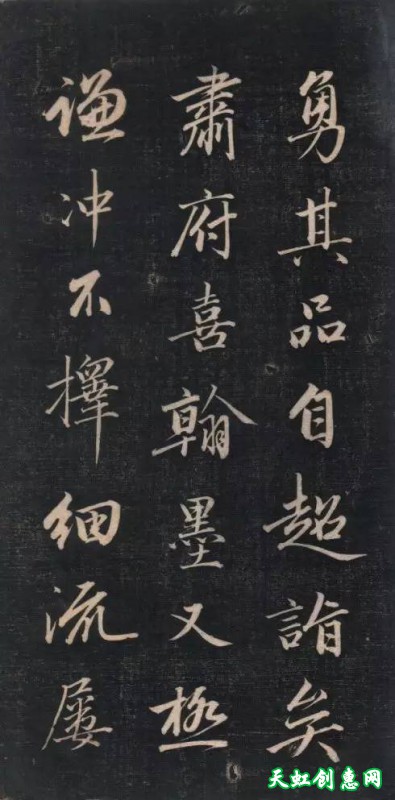 勇其品自超詣矣
肅府喜翰墨又極
谦冲不擇细流屡
天虹创惠网